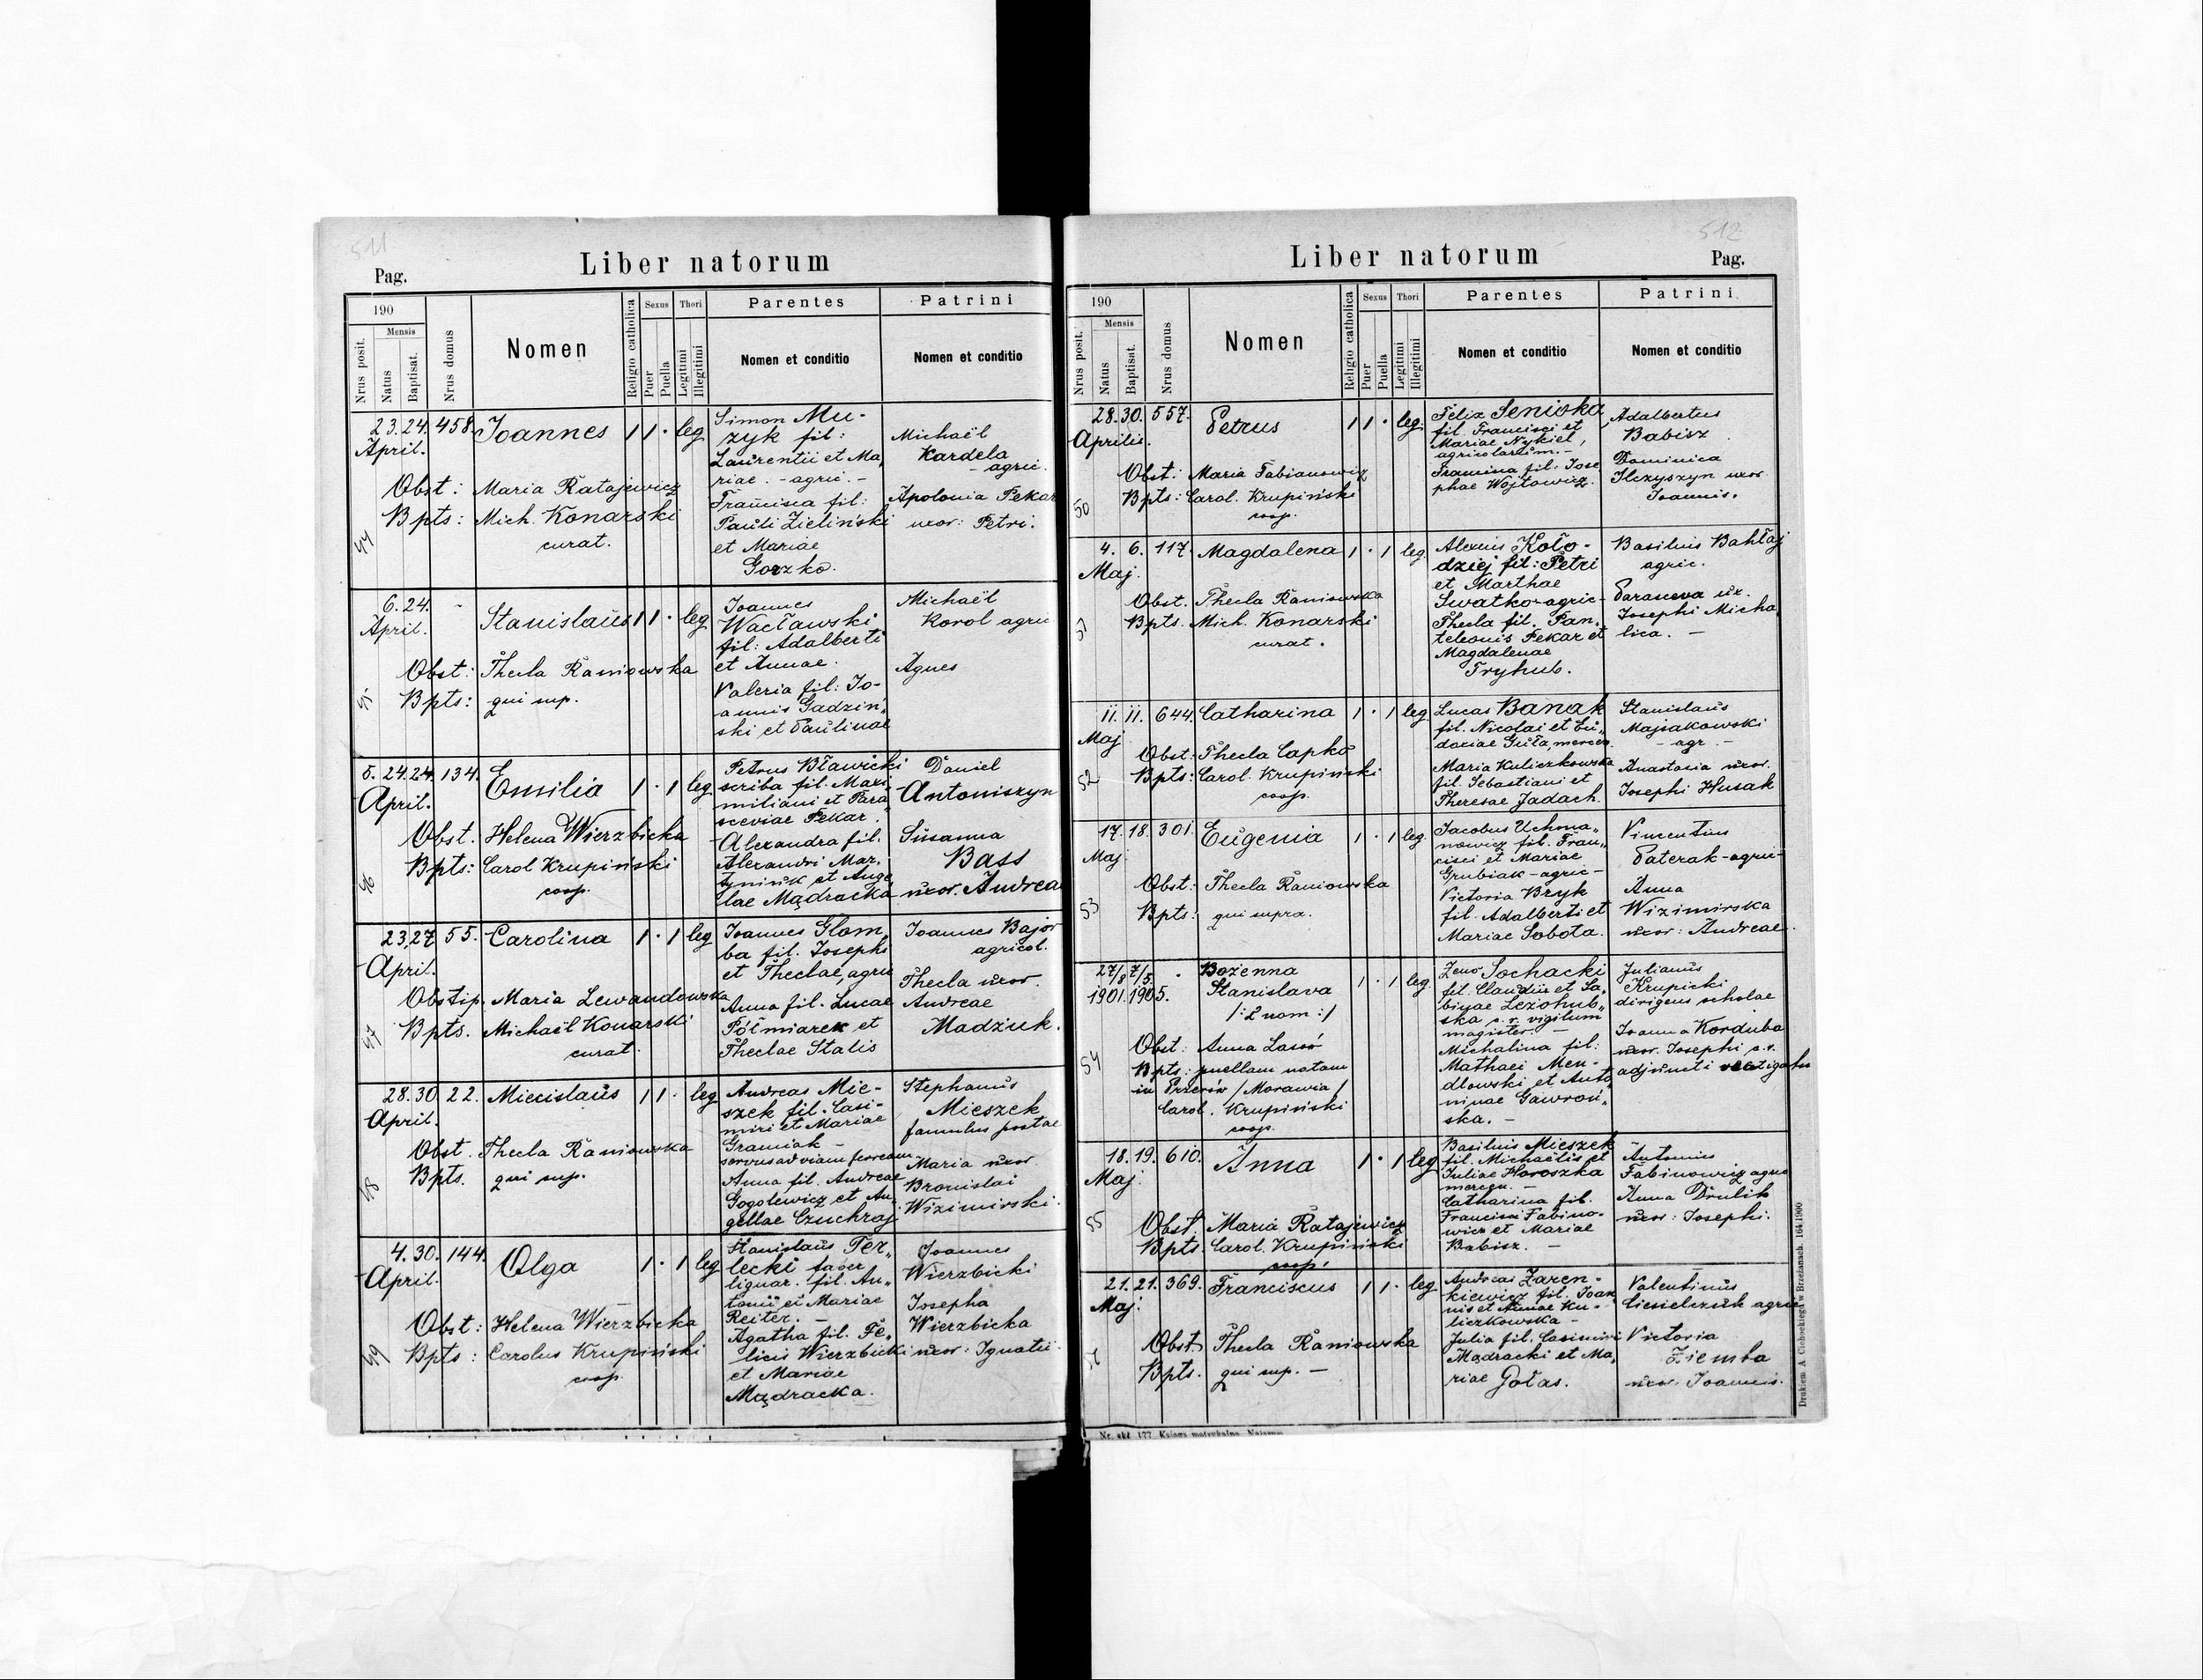 511
Pag.
Liber natorum
190
Mensis
Nrus posit.
Natus
Baptisat.
Nrus domus
Nomen
Religio catholica
Sexus
Puer
Puella
Thori
Legitimi
Illegitimi
Parentes
Nomen et conditio
Patrini
Nomen et conditio
44
23. 24. 458
April.
Joannes
1 1 · leg
Obst: Maria Ratajewicz
Bpts: Mich. Konarski
curat.
Simon Mu-
zyk fil:
Laurentii et Ma,
riae. - agric. -
Francisca fil:
Pauli Zieliński
et Mariae
Gorzko.
Michaël
Kardela
- agric.
Apolonia Pekar
uxor: Petri.
45
6. 24. -
April.
Stanislaus
1 1 · leg
Obst: Thecla Raniowska
Bpts: qui sup.
Joannes
Wacławski
fil: Adalberti
et Annae.
Valeria fil: Jo-
annis Gadziń,
ski et Paulinae
Michaël
Korol agric
Agnes
46
5. 24. 24. 134.
April.
Emilia
1 · 1 leg
Obst. Helena Wierzbicka
Bpts: Carol Krupiński
coop.
Petrus Bławicki
scriba fil. Maxi,
miliani et Para
sceviae Pekar.
Alexandra fil.
Alexandri Mar,
tyniuk et Ange
lae Mądracka
Daniel
Antoniszyn
Susanna
Bass
uxor. Andrea
47
23, 27 55.
April.
Carolina
1 · 1 leg
Obstip. Maria Lewandowska
Bpts. Michaël Konarski
curat.
Joannes Glom
ba fil. Josephi
et Theclae, agric
Anna fil. Lucae
Półmiarek et
Theclae Stalis
Joannes Bajor
agricol.
Thecla uxor.
Andreae
Madziuk.
48
28. 30. 22.
April.
Miecislaus
1 1 · leg
Obst. Thecla Raniowska
Bpts. qui sup.
Andreas Mie-
szek fil. Casi-
miri et Mariae
Gramiak -
servus ad viam ferream
Anna fil. Andreae
Gogolewicz et An,
gellae Czuchraj
Stephanus
Mieszek
famulus postae
Maria uxor
Bronislai
Wizimirski.
49
4. 30. 144.
April.
Olga
1 · 1 leg
Obst: Helena Wierzbicka
Bpts: Carolus Krupiński
coop.
Stanislaus Ter,,
lecki faber
lignar. fil. An,,
tonii et Mariae
Reiter. -
Agatha fil. Fe,
licis Wierzbicki
et Mariae
Mądracka.
Joannes
Wierzbicki
Josepha
Wierzbicka
uxor: Ignatii.
512
Liber natorum
Pag.
190
Mensis
Nrus posit.
Natus
Baptisat.
Nrus domus
Nomen
Religio catholica
Sexus
Puer
Puella
Thori
Legitimi
Illegitimi
Parentes
Nomen et conditio
Patrini
Nomen et conditio
50
28. 30. 557.
Aprilis.
Petrus
1 1 · leg.
Obst: Maria Fabianowicz
Bpts: Carol. Krupiński
coop.
Felix Seniska
fil. Francisci et
Mariae Nykiel,
Francisca fil. Jose
phae Wojtowicz.
Adalbertus
Babisz
Dominica
Ilczyszyn uxor
Joannis.
51
4. 6. 117.
Maj.
Magdalena
1 · 1 leg.
Obst. Thecla Raniowska
Bpts. Mich. Konarski
curat.
Alexius Koło-
dziej fil: Petri
et Marthae
Swatko - agric -
Thecla fil. Pan,
teleonis Pekar et
Magdalenae
Tryhub.
Basilius Bahłaj
agric.
Parasceva ux.
Josephi Micha
lica. -
52
11. 11. 644.
Maj
Catharina
1 · 1 leg
Obst: Thecla Capko
Bpts: Carol. Krupiński
coop.
Lucas Banak
fil. Nicolai et Eu,
dociae Guła, mercen.
Maria Kuliczkowska
fil. Sebastiani et
Theresae Jadach.
Stanislaus
Majsakowski
- agr. -
Anastasia uxor.
Josephi Husak
53
17. 18. 301.
Maj.
Eugenia
1 · 1 leg.
Obst: Thecla Raniowska
Bpts: qui supra.
Jacobus Uchma,,
nowicz fil. Fran,,
cisci et Mariae
Grubiak - agric -
Victoria Bryk
fil. Adalberti et
Mariae Sobota.
Vincentius
Paterak - agric -
Anna
Wizimirska
uxor: Andreae.
54
27/8 7/5. -
1901. 1905.
Bożenna
Stanislava
/: 2 nom :/
1 · 1 leg
Obst: Anna Lasoń
Bpts: puellam natam
in Przerów / Morawia /
Carol. Krupiński
coop.
Zeno Sochacki
fil. Claudii et Sa,
binae Leziohub,,
ska c. r. vigilum
magister. -
Michalina fil:
Mathaei Men-
dlowski et Anto
ninae Gawroń,
ska. -
Julianus
Krupicki
dirigens scholae
Joanna Korduba
uxor. Josephi c. r.
adjuncti
55
18. 19. 610.
Maj.
Anna
1 · 1 leg
Obst. Maria Ratajewicz
Bpts Carol. Krupiński
coop.
Basilius Mieszek
fil. Michaëlis et
Juliae Horoszka
mercen. -
Catharina fil.
Francisci Fabino-
wicz et Mariae
Babisz. -
Antonius
Fabinowicz agric
Anna Drulik
uxor: Josephi.
21. 21. 369.
Maj.
Franciscus
1 1 · leg
Obst. Thecla Raniowska
Bpts. qui sup. -
Andreas Zaren-
kiewicz fil. Joan
nis et Annae Ku-
liczkowska -
Julia fil. Casimiri
Mądracki et Ma,
riae Gołas.
Valentinus
Ciesielczuk agric
Victoria
Ziemba
uxor. Joannis.
Drukiem A. Cichockiego w Brzeżanach. 164 1900